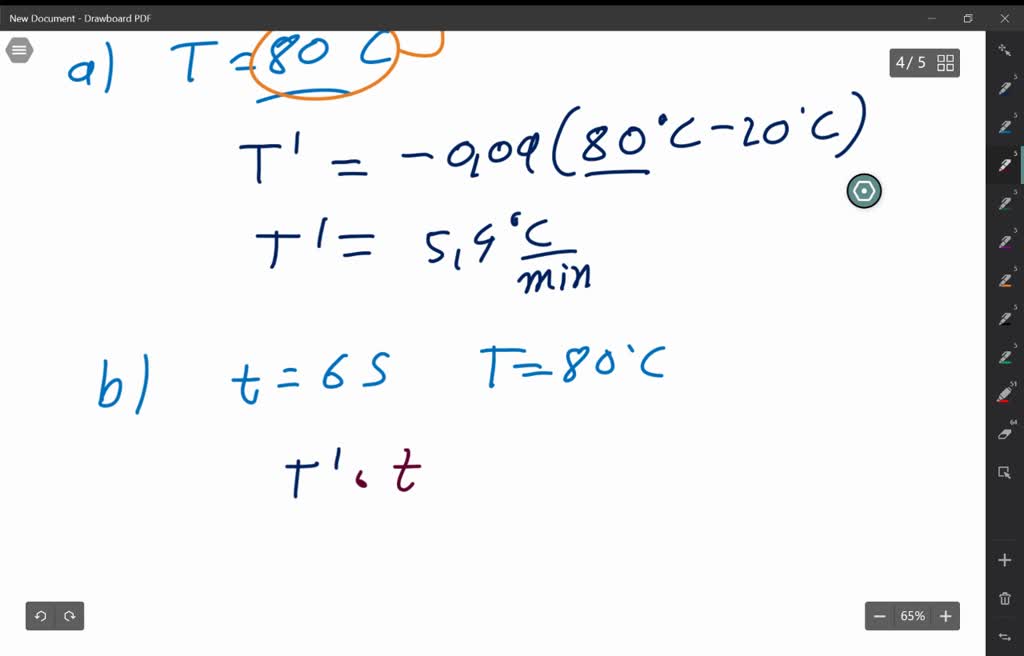 New Document - Drawboard PDF
4 / 5
a) T = 80 C
T' = -0,09 (80°C - 20°C)
T' = 5,4 °C/min
b) t = 6 S T = 80°C
T' · t
65%
5
5
5
5
5
5
5
5
51
64